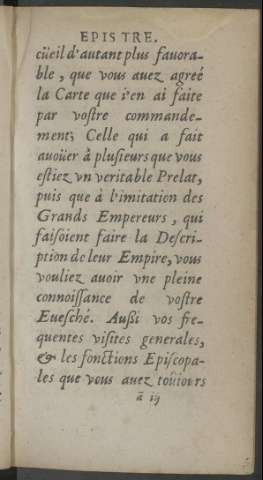 EPISTRE.
cüeil d'autant plus fauora-
ble, que vous auez agreé
la Carte que i'en ai faite
par vostre commande-
ment; Celle qui a fait
auoüer à plusieurs que vous
estiez vn veritable Prelat,
puis que à l'imitation des
Grands Empereurs, qui
faisoient faire la Descri-
ption de leur Empire, vous
vouliez auoir vne pleine
connoissance de vostre
Euesché. Aussi vos fre-
quentes visites generales,
& les fonctions Episcopa-
les que vous auez toûiours
ã iij